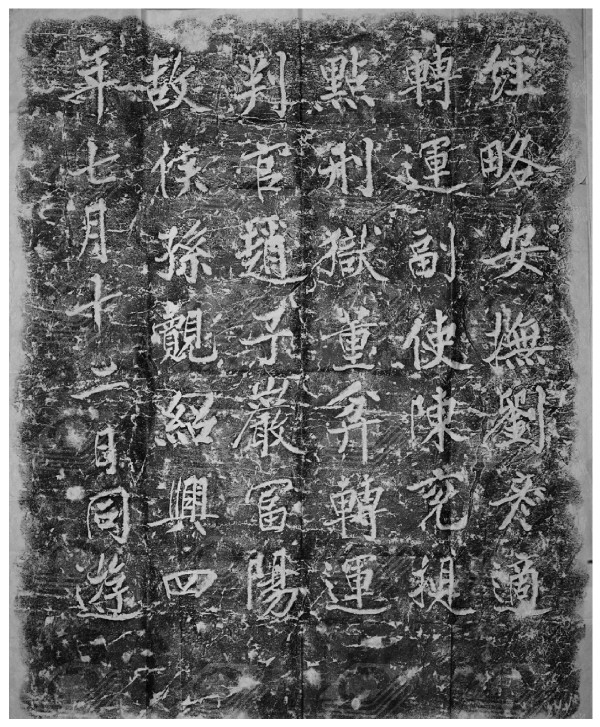 經略安撫劉彥適
轉運副使陳兗提
點刑獄董弅轉運
判官趙子巖冨陽
故侯孫覿紹興四
年七月十二日同遊